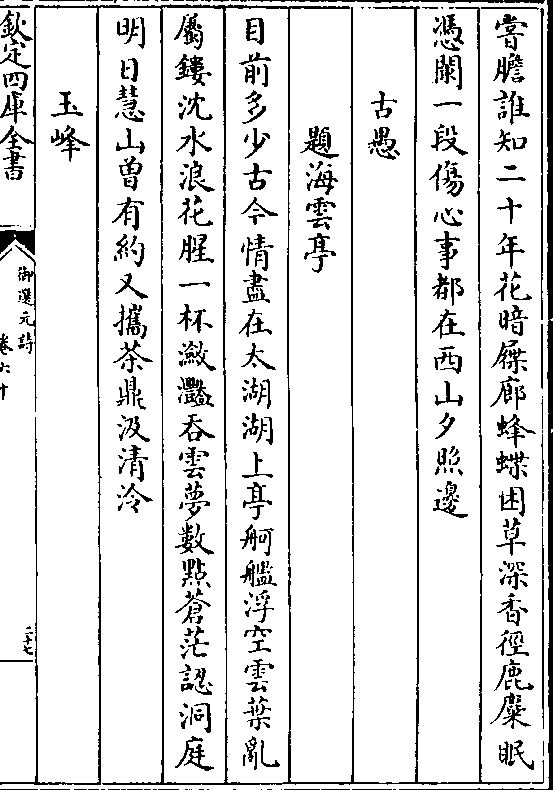 嘗膽誰知二十年花暗屧廊蜂蝶困草深香徑鹿麋眠
憑闌一段傷心事都在西山夕照邊
古愚
題海雲亭
目前多少古今情盡在太湖湖上亭舸艦浮空雲葉亂
屬鏤沈水浪花腥一杯瀲灩吞雲夢數點蒼茫認洞庭
明日慧山曾有約又攜茶鼎汲清泠
玉峰
欽定四庫全書
御選元詩
卷六十
二七